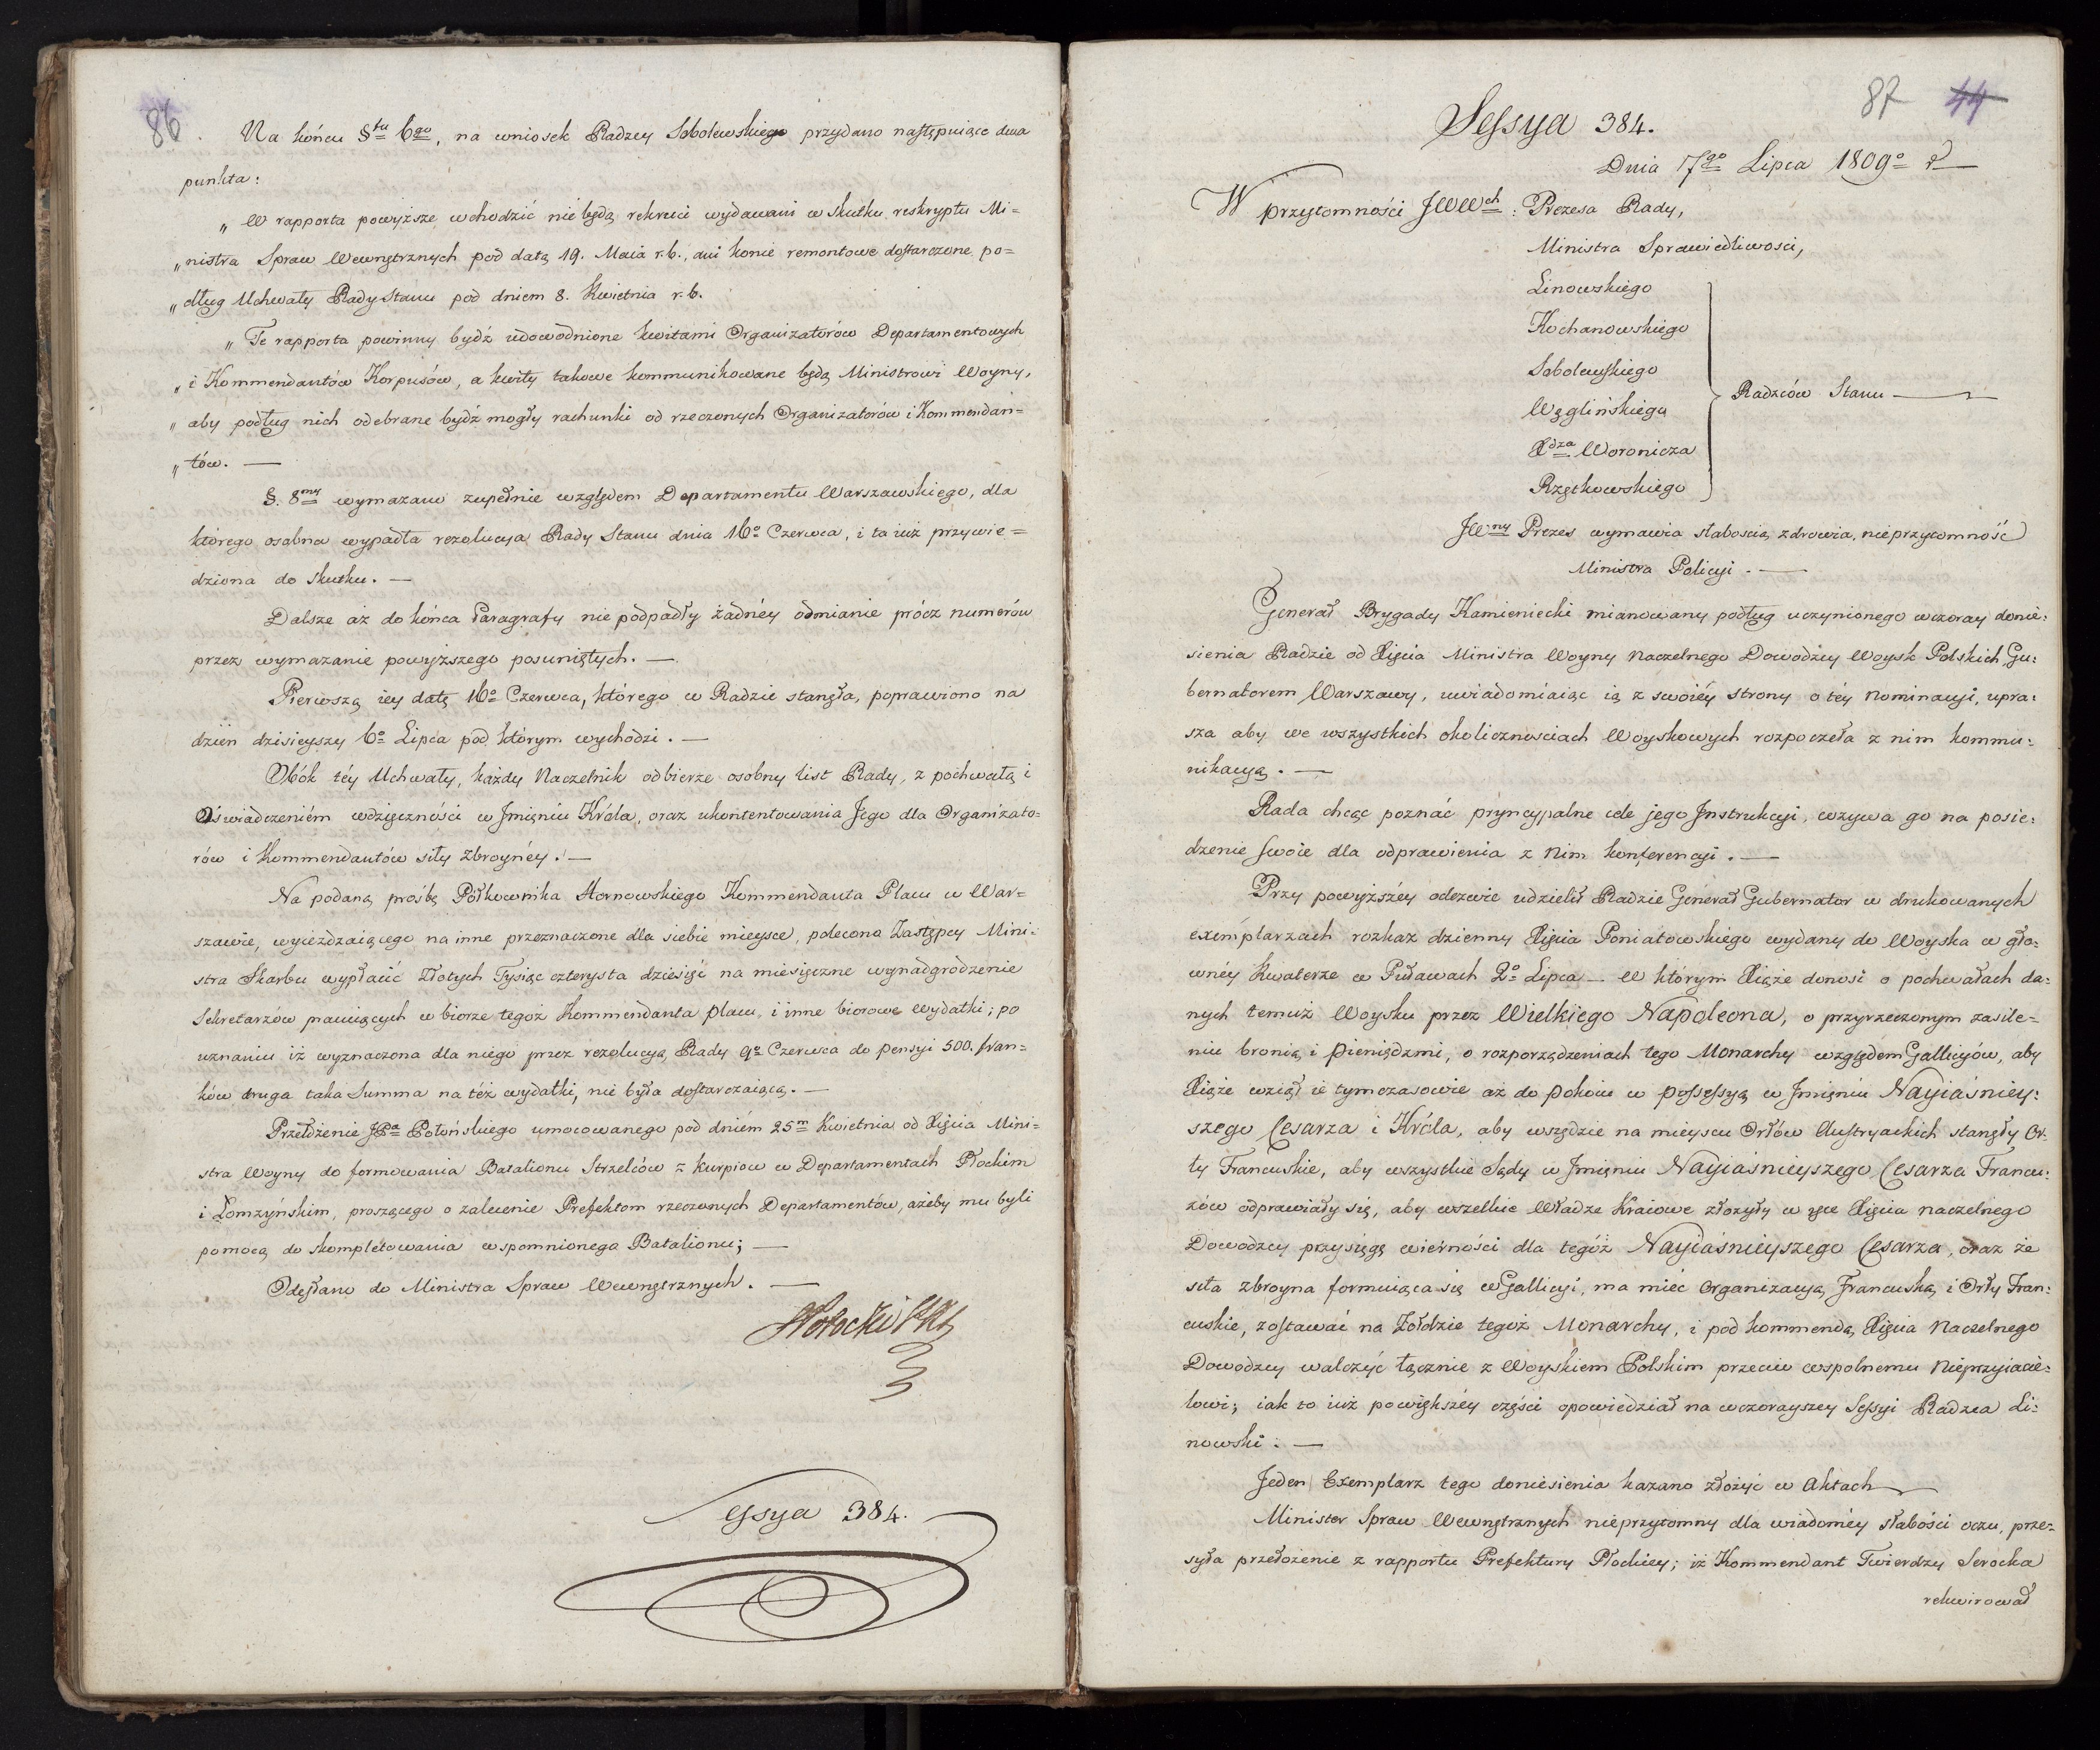 86.
Na końcu §tu 6go, na wniosek Radzcy Sobolewskiego przydano następuiące dwa
punkta:
„ W rapporta powyższe wchodzić nie będą rekruci wydawani w skutku reskryptu Mi=
„nistra Spraw Wewnętrznych pod datą 19. Maia r.b., ani konie remontowe dostarczone po=
„dług Uchwały Rady Stanu pod dniem 8. Kwietnia r.b.
„ Te rapporta powinny bydź udowodnione kwitami Organizatorów Departamentowych
„ i Kommendantów Korpusów, a kwity takowe kommunikowane będą Ministrowi Woyny,
„ aby podług nich odebrane bydź mogły rachunki od rzeczonych Organizatorów i Kommendan=
„ tów. —
§. 8my wymazano zupełnie względem Departamentu Warszawskiego, dla
którego osobna wypadła rezolucya Rady Stanu dnia 16o Czerwca, i ta iuż przywie=
dziona do skutku. —
Dalsze aż do końca Paragrafy nie podpadły żadnéy odmianie prócz numerów
przez wymazanie powyższego posuniętych. —
Pierwszą iey datę 16o Czerwca, którego w Radzie stanęła, poprawiono na
dzień dzisieyszy 6o Lipca pod którym wychodzi. —
Obók téy Uchwały, każdy Naczelnik odbierze osobny list Rady, z pochwałą i
Oświadczeniém wdzięczności w Jmięniu Króla, oraz ukontentowania Jego dla Organizato=
rów i Kommendantów siły zbroynéy. —
Na podaną prośbę Półkownika Hornowskiego Kommendanta Placu w War=
szawie, wyieżdzaiącego na inne przeznaczone dla siebie mieysce, polecono Zastępcy Mini=
stra Skarbu wypłacić Złotych Tysiąc czterysta dziesięć na miesięczne wynadgrodzenie
Sekretarzów pracuiących w biorze tegoż Kommendanta placu, i inne biorowe wydatki; po
uznaniu iż wyznaczona dla niego przez rezolucyą Rady 9o Czerwca do pensyi 500. fran=
ków druga taka Summa na też wydatki, nie była dostarczaiącą. —
Przełożenie JPa Połońskiego umocowanego pod dniém 25m Kwietnia od Xięcia Mini=
stra Woyny do formowania Batalionu Strzelców z Kurpiow w Departamentach Płockim
i Łomżyńskim, proszącego o zalecenie Prefektom rzeczonych Departamentów, ażeby mu byli
pomocą do skompletowania wspomnionego Batalionu; —
Odesłano do Ministra Spraw Wewnętrznych. —
Sessya 384.
87 44
Sessya 384.
Dnia 7go Lipca 1809o r.
W przytomności JWWch: Prezesa Rady,
Ministra Sprawiedliwosci,
Linowskiego
Kochanowskiego
Sobolewskiego
Węglińskiego
Xdza Woronicza
Rzętkowskiego
Radzców Stanu —
JWny Prezes wymawia słaboscią zdrowia, nieprzytomność
Ministra Policyi. —
Generał Brygady Kamieniecki mianowany podług uczynionego wczoray donie:
sienia Radzie od Xięcia Ministra Woyny Naczelnego Dowódzcy Woysk Polskich Gu:
bernatorem Warszawy, uwiadomiaiąc ią z swoiéy strony o téy Nominacyi, upra:
sza aby we wszystkich okolicznosciach Woyskowych rozpoczeła z nim kommu:
nikacyą. —
Rada chcąc poznać pryncypalne cele jego Jnstrukcyi, wzywa go na posie:
dzenie swoie dla odprawienia z Nim konferencyi. —
Przy powyższéy odezwie udzielił Radzie Generał Gubernator w drukowanych
exemplarzach rozkaz dzienny Xięcia Poniatowskiego wydany do Woyska w gło=
wnéy Kwaterze w Puławach 2o Lipca — W którym Xiąże donosi o pochwałach da:
nych temuż Woysku przez Wielkiego Napoleona, o przyrzeczonym zasile=
niu bronią i pieniędzmi, o rozporządzeniach tego Monarchy względem Gallicyów, aby
Xiąże wziął ie tymczasowie aż do pokoiu w possessyą w Jmięniu Nayiaśniey:
szego Cesarza i Króla, aby wszędzie na mieyscu Orłów Austryackich stanęły Or:
ły Francuskie, aby wszystkie Sądy w Jmięniu Nayiaśnieyszego Cesarza Francu:
zów odprawiały się, aby wszelkie Władze Kraiowe złożyły w ręce Xięcia naczelnego
Dowodzcy przysięgę wierności dla tegóż Nayiaśnieyszego Cesarza, oraz że
siła zbroyna formuiąca się w Gallicyi, ma mieć organizacyą Francuską i Orły Fran:
cuskie, zostawać na Żołdzie tegoż Monarchy, i pod kommendą Xięcia Naczelnego
Dowodzcy walczyć łącznie z Woyskiem Polskim przeciw wspolnemu Nieprzyiacie=
lowi; iak to iuż powiększéy części opowiedział na wczorayszey Sessyi Radzca Li=
nowski. —
Jeden Exemplarz tego doniesienia kazano złożyć w Aktach
Minister Spraw Wewnętrznych nieprzytomny dla wiadoméy słabości oczu, prze=
syła przełożenie z rapportu Prefektury Płockiey; iż Kommendant Twierdzy Serocka
rekwirował